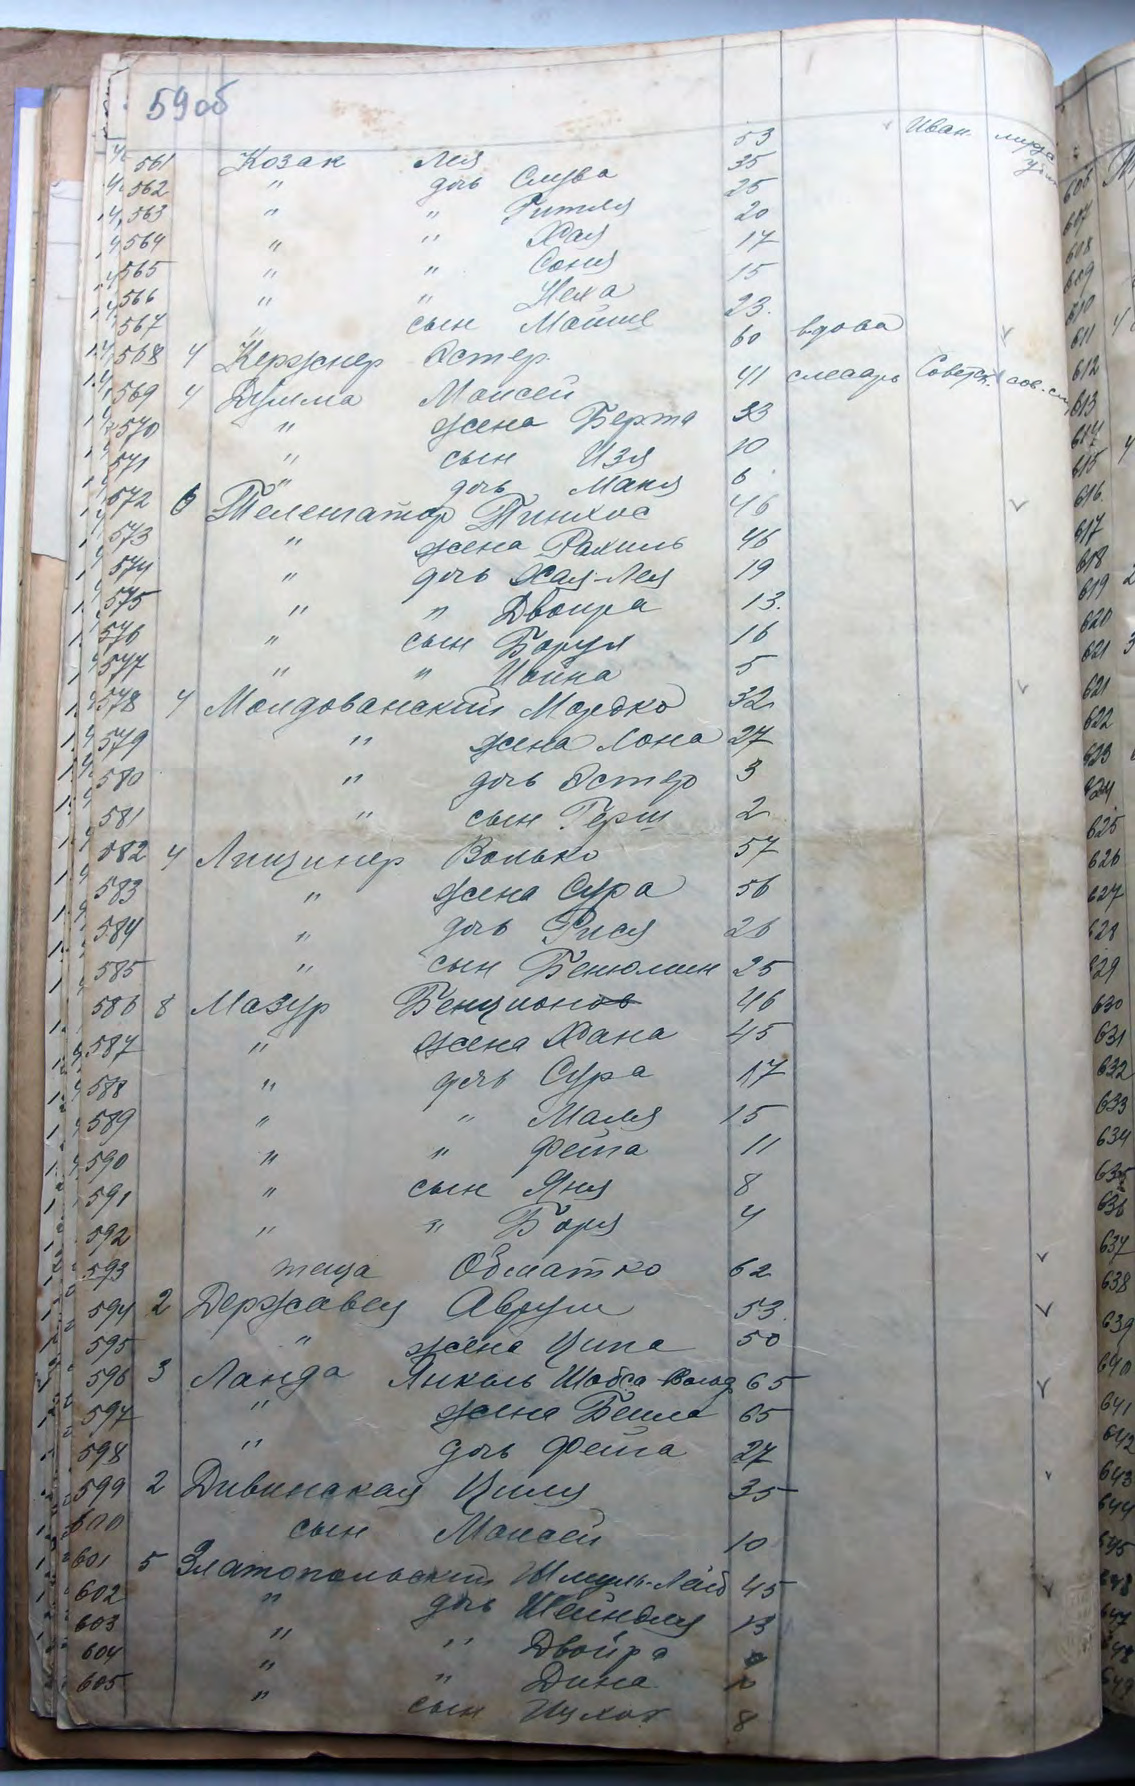 59об
561 Козак Лея 53 Иван
562 " дочь Слува 35
563 " " Гитля 25
564 " " Хая 20
565 " " Соня 17
566 " " Неха 15
567 " сын Мойше 23.
568 4 Кержнер Эстер. 60 вдова
569 4 Дымма Моисей 41 слесарь Советск.
570 " жена Берта 33
571 " сын Изя 10
" дочь Маня 6
572 6 Телентатор Пинхос 46
573 " жена Рахиль 46
574 " дочь Хая-Лея 19
575 " " Двойра 13.
576 " сын Борух 16
577 " " Иойна 5
578 4 Молдованский Мордко 32
579 " жена Хона 27
580 " дочь Эстер 3
581 " сын Герш 2
582 4 Лищинер Волько 57
583 " жена Сура 56
584 " дочь Рися 26
585 " сын Бенюмин 25
586 8 Мазур Бенционов 46
587 " жена Хана 45
588 " дочь Сура 17
589 " " Маля 15
590 " " Фейга 11
591 " сын Яня 8
592 " " Боря 4
593 теща 62
594 2 Державец Аврум 53.
595 " жена Ципа 50
596 3 Ланда Янкель 65
597 " жена Бейла 65
598 " дочь Фейга 27
599 2 Дивинская Циля 35
600 сын Моисей 10
601 5 Златопольский Шмуль-Лейб 45
602 " дочь Шейндля 13
603 " " Двойра
604 " " Дина
605 " сын Ицхок 8
606
607
608
609
610
611
612
613
614
615
616
617
618
619
620
621
621
622
623
624
625
626
627
628
629
630
631
632
633
634
635
636
637
638
639
640
641
642
643
644